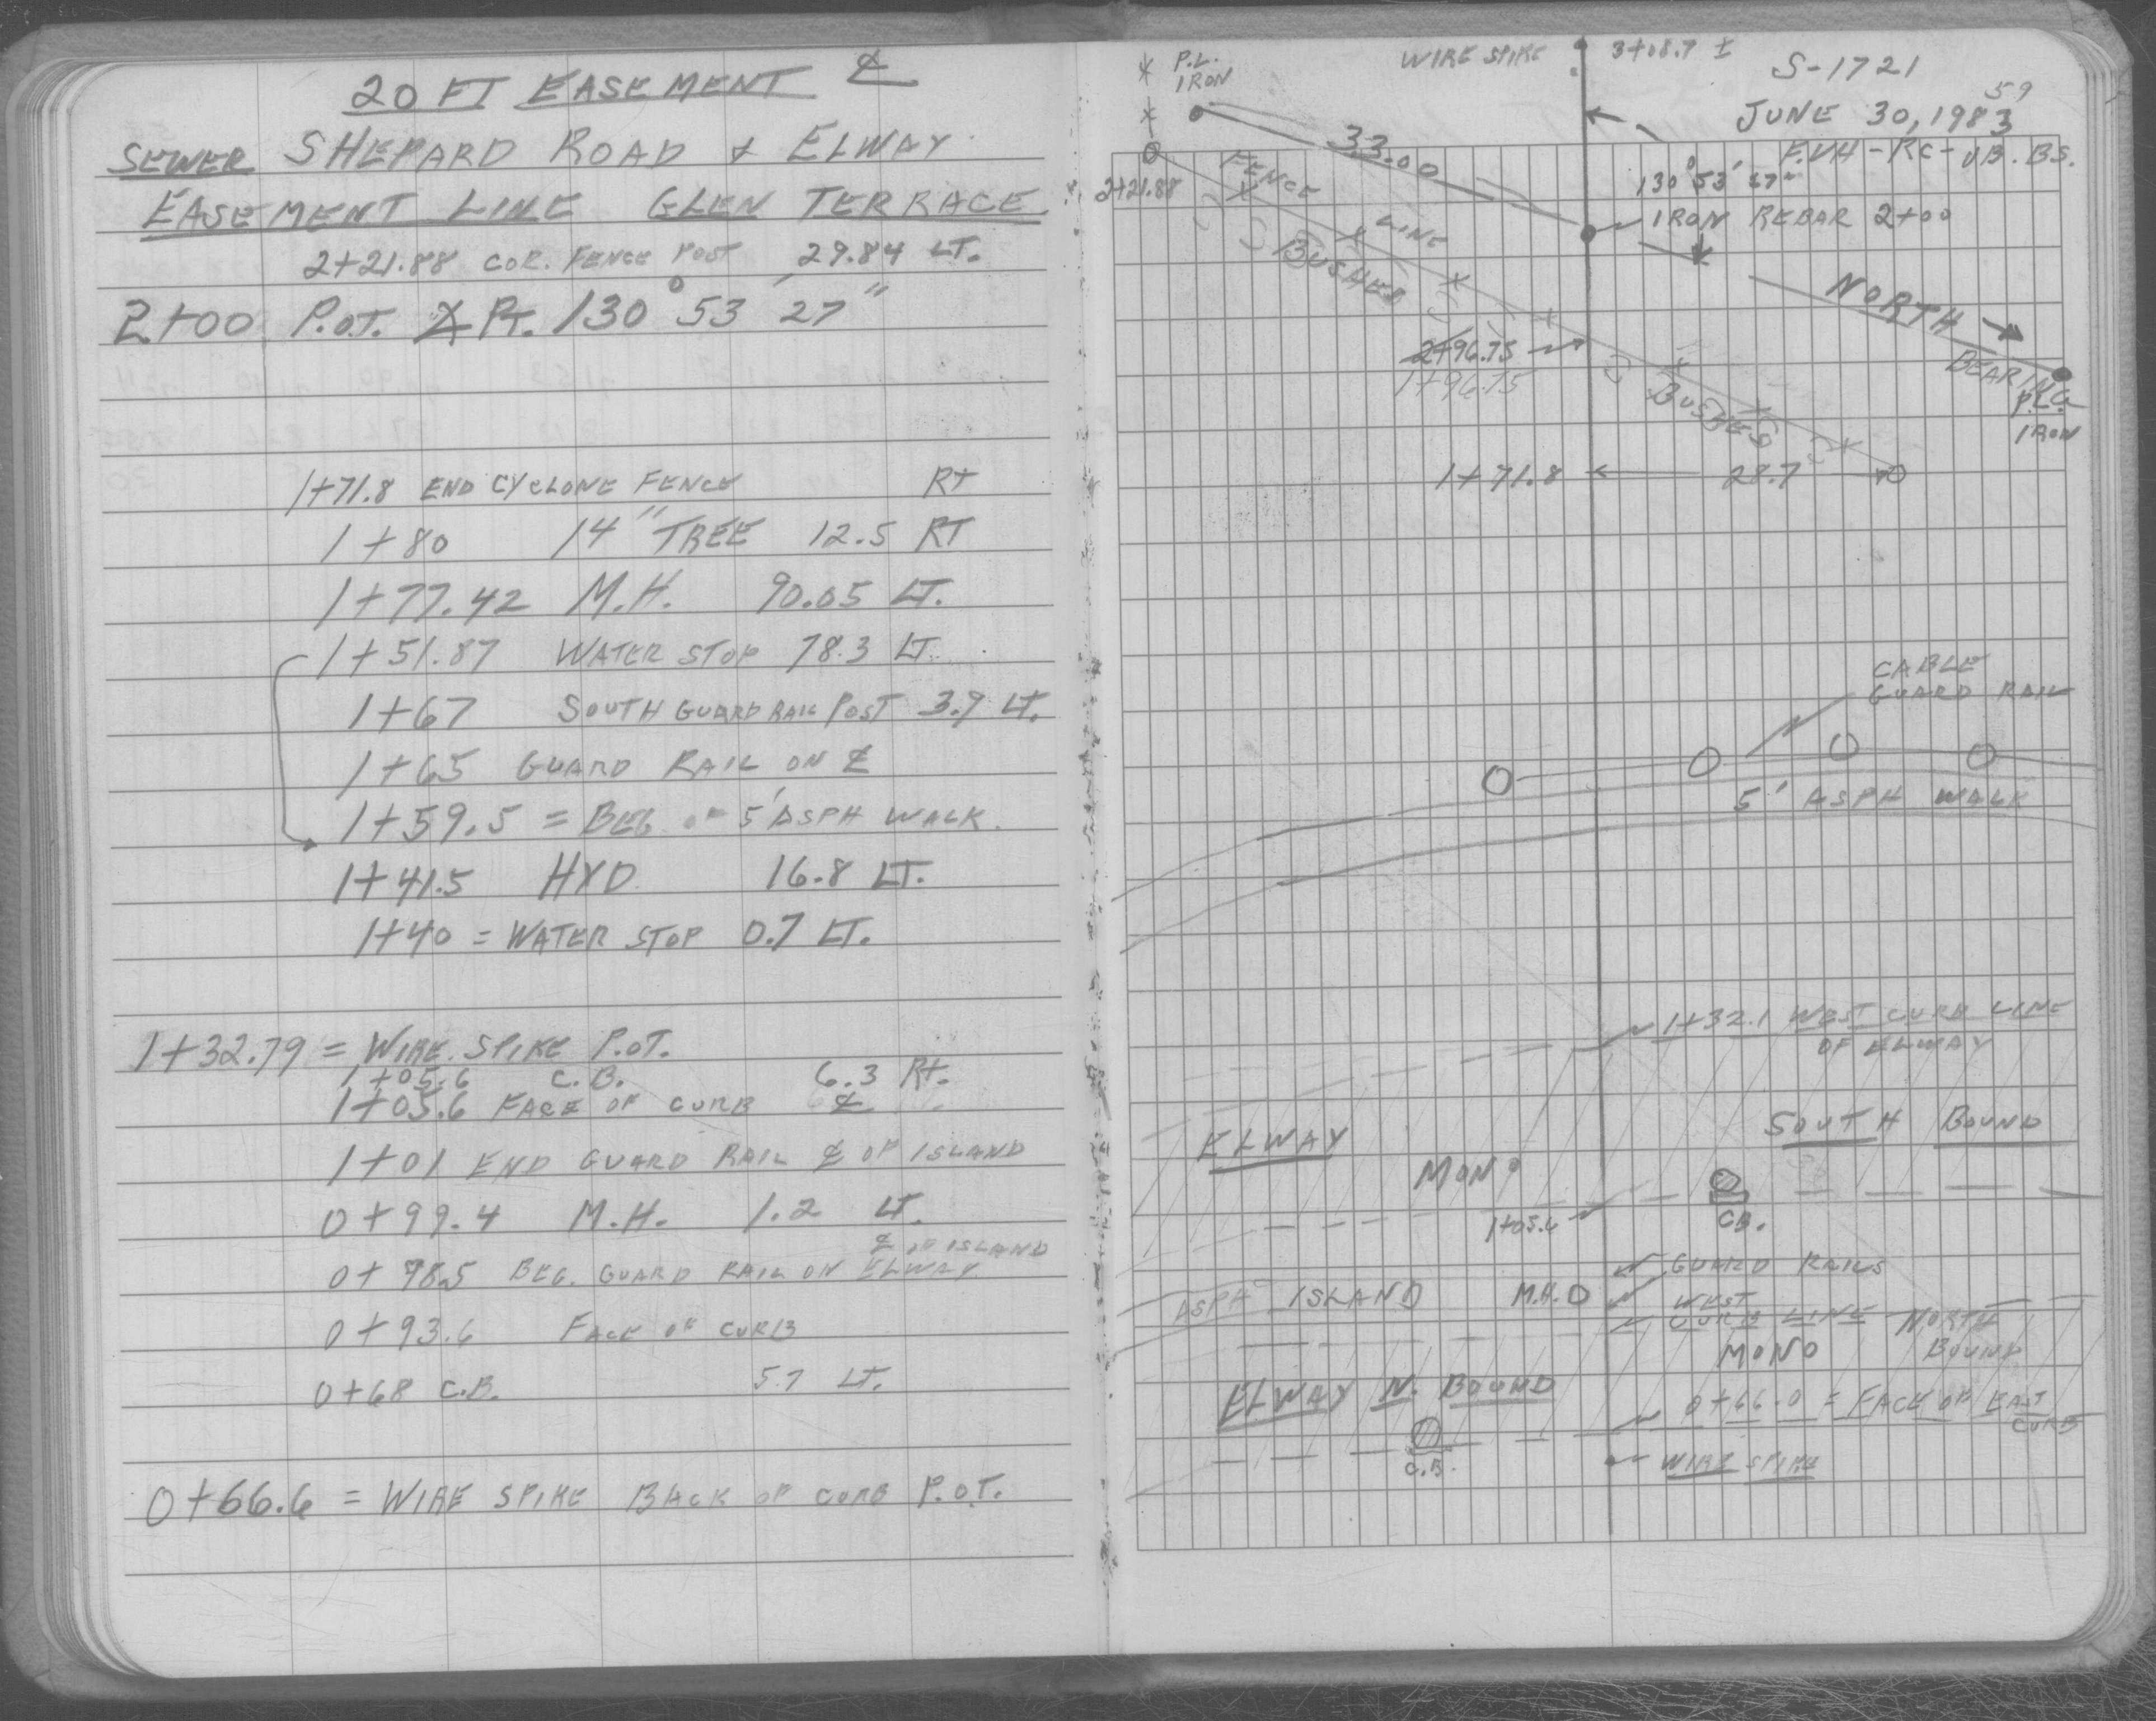 20 FT EASEMENT ℄
SEWER SHEPARD ROAD & ELWAY
EASEMENT LINE GLEN TERRACE
2+21.88 COR. FENCE POST 29.84 LT.
2+00 P.O.T. ∠ PT. 130° 53' 27"
1+71.8 END CYCLONE FENCE RT
1+80 14" TREE 12.5 RT
1+77.42 M.H. 90.05 LT.
1+51.87 WATER STOP 78.3 LT.
1+67 SOUTH GUARD RAIL POST 3.9 LT.
1+65 GUARD RAIL ON ℄
1+59.5 = BEG OF 5' ASPH WALK.
1+41.5 HYD 16.8 LT.
1+40 = WATER STOP 0.7 LT.
1+32.79 = WIRE SPIKE P.O.T.
1+05.6 C.B. 6.3 RT.
1+05.6 FACE OF CURB ℄
1+01 END GUARD RAIL ℄ OF ISLAND
0+99.4 M.H. 1.2 LT.
℄ OF ISLAND
0+98.5 BEG. GUARD RAIL ON ELWAY
0+93.6 FACE OF CURB
0+68 C.B. 5.7 LT.
0+66.6 = WIRE SPIKE BACK OF CURB P.O.T.
P.L.
IRON
WIRE SPIKE 3+08.7 ±
S-1721
59
JUNE 30, 1983
F.VH - RC - JB. BS.
33.00
130° 53' 27"
2+21.88
FENCE LINE
IRON REBAR 2+00
BUSHES
NORTH
2+96.75
1+96.75
BEARING
P.L.
IRON
BUSHES
1+71.8 28.7
CABLE
GUARD RAIL
5' ASPH WALK
1+32.1 WEST CURB LINE
OF ELWAY
ELWAY
SOUTH BOUND
MON
1+05.6
C.B.
GUARD RAILS
ASPH ISLAND M.H.
WEST
CURB LINE NORTH
BOUND
MONO
ELWAY N. BOUND
0+66.0 = FACE OF EAST
CURB
C.B.
WIRE SPIKE